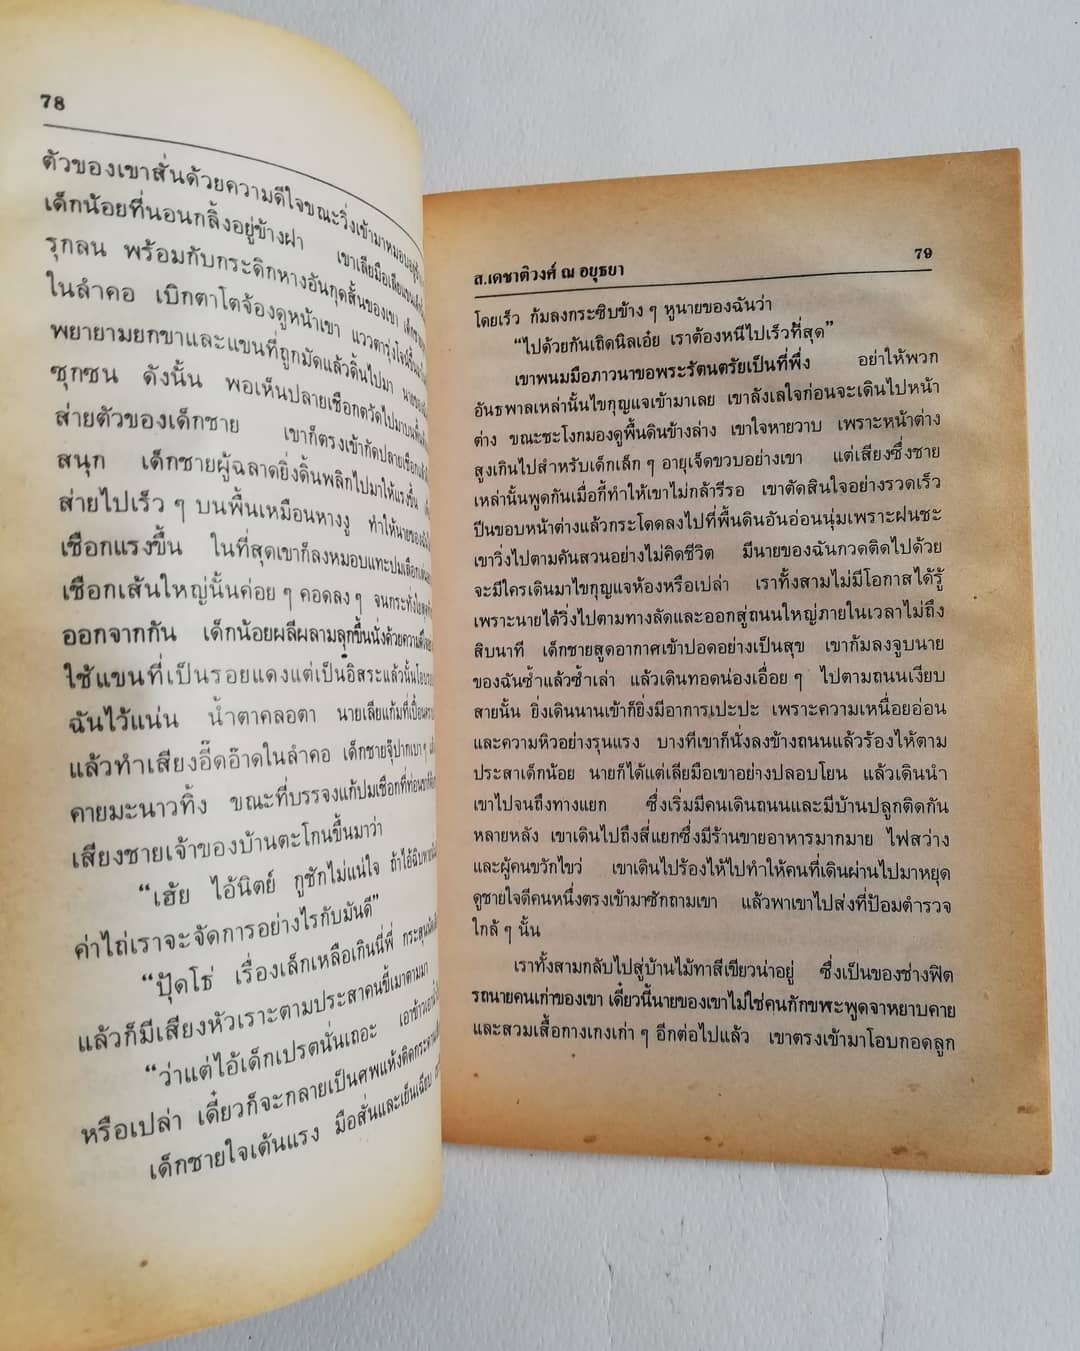 78
ตัวของเขาสั่นด้วยความดีใจขณะวิ่งเข้ามาหมอบ
เด็กน้อยที่นอนกลิ้งอยู่ข้างฝา เขาเลียมือเลียแขน
รุกลน พร้อมกับกระดิกหางอันกุดสั้นของเขา
ในลำคอ เบิกตาโตจ้องดูหน้าเขา แววตารุ่งโรจน์ขึ้น
พยายามยกขาและแขนที่ถูกมัดแล้วดิ้นไปมา
ซุกซน ดังนั้น พอเห็นปลายเชือกตวัดไปมาบนพื้น
ส่ายตัวของเด็กชาย เขาก็ตรงเข้ากัดปลายเชือก
สนุก เด็กชายผู้ฉลาดยิ่งดิ้นพลิกไปมาให้แรงขึ้น
ส่ายไปเร็ว ๆ บนพื้นเหมือนหางงู ทำให้นายของฉัน
เชือกแรงขึ้น ในที่สุดเขาก็ลงหมอบแทะปมเชือก
เชือกเส้นใหญ่นั้นค่อย ๆ คอดลง ๆ จนกระทั่ง
ออกจากกัน เด็กน้อยผลีผลามลุกขึ้นนั่งด้วยความ
ใช้แขนที่เป็นรอยแดงแต่เป็นอิสระแล้วนั้นโอบ
ฉันไว้แน่น น้ำตาคลอตา นายเลียแก้มที่เปื้อน
แล้วทำเสียงอี๊ดอ๊าดในลำคอ เด็กชายจุ๊ปากเบา ๆ
คายมะนาวทิ้ง ขณะที่บรรจงแก้ปมเชือกที่ท่อนขา
เสียงชายเจ้าของบ้านตะโกนขึ้นมาว่า
“เฮ้ย ไอ้นิตย์ กูชักไม่แน่ใจ ถ้าไอ้ฉิบหาย
ค่าไถ่เราจะจัดการอย่างไรกับมันดี”
“ปุ้ดโธ่ เรื่องเล็กเหลือเกินนี่พี่ กระสุนนัด
แล้วก็มีเสียงหัวเราะตามประสาคนขี้เมาตามมา
“ว่าแต่ไอ้เด็กเปรตนั่นเถอะ เอาข้าว
หรือเปล่า เดี๋ยวก็จะกลายเป็นศพแห้งติดกระดาน
เด็กชายใจเต้นแรง มือสั่นและเย็นเฉียบ
ส.เดชาติวงศ์ ณ อยุธยา 79
โดยเร็ว ก้มลงกระซิบข้าง ๆ หูนายของฉันว่า
“ไปด้วยกันเถิดนิลเอ๋ย เราต้องหนีไปเร็วที่สุด”
เขาพนมมือภาวนาขอพระรัตนตรัยเป็นที่พึ่ง อย่าให้พวก
อันธพาลเหล่านั้นไขกุญแจเข้ามาเลย เขาลังเลใจก่อนจะเดินไปหน้า
ต่าง ขณะชะโงกมองดูพื้นดินข้างล่าง เขาใจหายวาบ เพราะหน้าต่าง
สูงเกินไปสำหรับเด็กเล็ก ๆ อายุเจ็ดขวบอย่างเขา แต่เสียงซึ่งชาย
เหล่านั้นพูดกันเมื่อกี้ทำให้เขาไม่กล้ารีรอ เขาตัดสินใจอย่างรวดเร็ว
ปีนขอบหน้าต่างแล้วกระโดดลงไปที่พื้นดินอันอ่อนนุ่มเพราะฝนชะ
เขาวิ่งไปตามคันสวนอย่างไม่คิดชีวิต มีนายของฉันกวดติดไปด้วย
จะมีใครเดินมาไขกุญแจห้องหรือเปล่า เราทั้งสามไม่มีโอกาสได้รู้
เพราะนายได้วิ่งไปตามทางลัดและออกสู่ถนนใหญ่ภายในเวลาไม่ถึง
สิบนาที เด็กชายสูดอากาศเข้าปอดอย่างเป็นสุข เขาก้มลงจูบนาย
ของฉันซ้ำแล้วซ้ำเล่า แล้วเดินทอดน่องเอื่อย ๆ ไปตามถนนเงียบ
สายนั้น ยิ่งเดินนานเข้าก็ยิ่งมีอาการเปะปะ เพราะความเหนื่อยอ่อน
และความหิวอย่างรุนแรง บางทีเขาก็นั่งลงข้างถนนแล้วร้องไห้ตาม
ประสาเด็กน้อย นายก็ได้แต่เลียมือเขาอย่างปลอบโยน แล้วเดินนำ
เขาไปจนถึงทางแยก ซึ่งเริ่มมีคนเดินถนนและมีบ้านปลูกติดกัน
หลายหลัง เขาเดินไปถึงสี่แยกซึ่งมีร้านขายอาหารมากมาย ไฟสว่าง
และผู้คนขวักไขว่ เขาเดินไปร้องไห้ไปทำให้คนที่เดินผ่านไปมาหยุด
ดูชายใจดีคนหนึ่งตรงเข้ามาซักถามเขา แล้วพาเขาไปส่งที่ป้อมตำรวจ
ใกล้ ๆ นั้น
เราทั้งสามกลับไปสู่บ้านไม้ทาสีเขียวน่าอยู่ ซึ่งเป็นของช่างฟิต
รถนายคนเก่าของเขา เดี๋ยวนี้นายของเขาไม่ใช่คนกักขฬะพูดจาหยาบคาย
และสวมเสื้อกางเกงเก่า ๆ อีกต่อไปแล้ว เขาตรงเข้ามาโอบกอดลูก